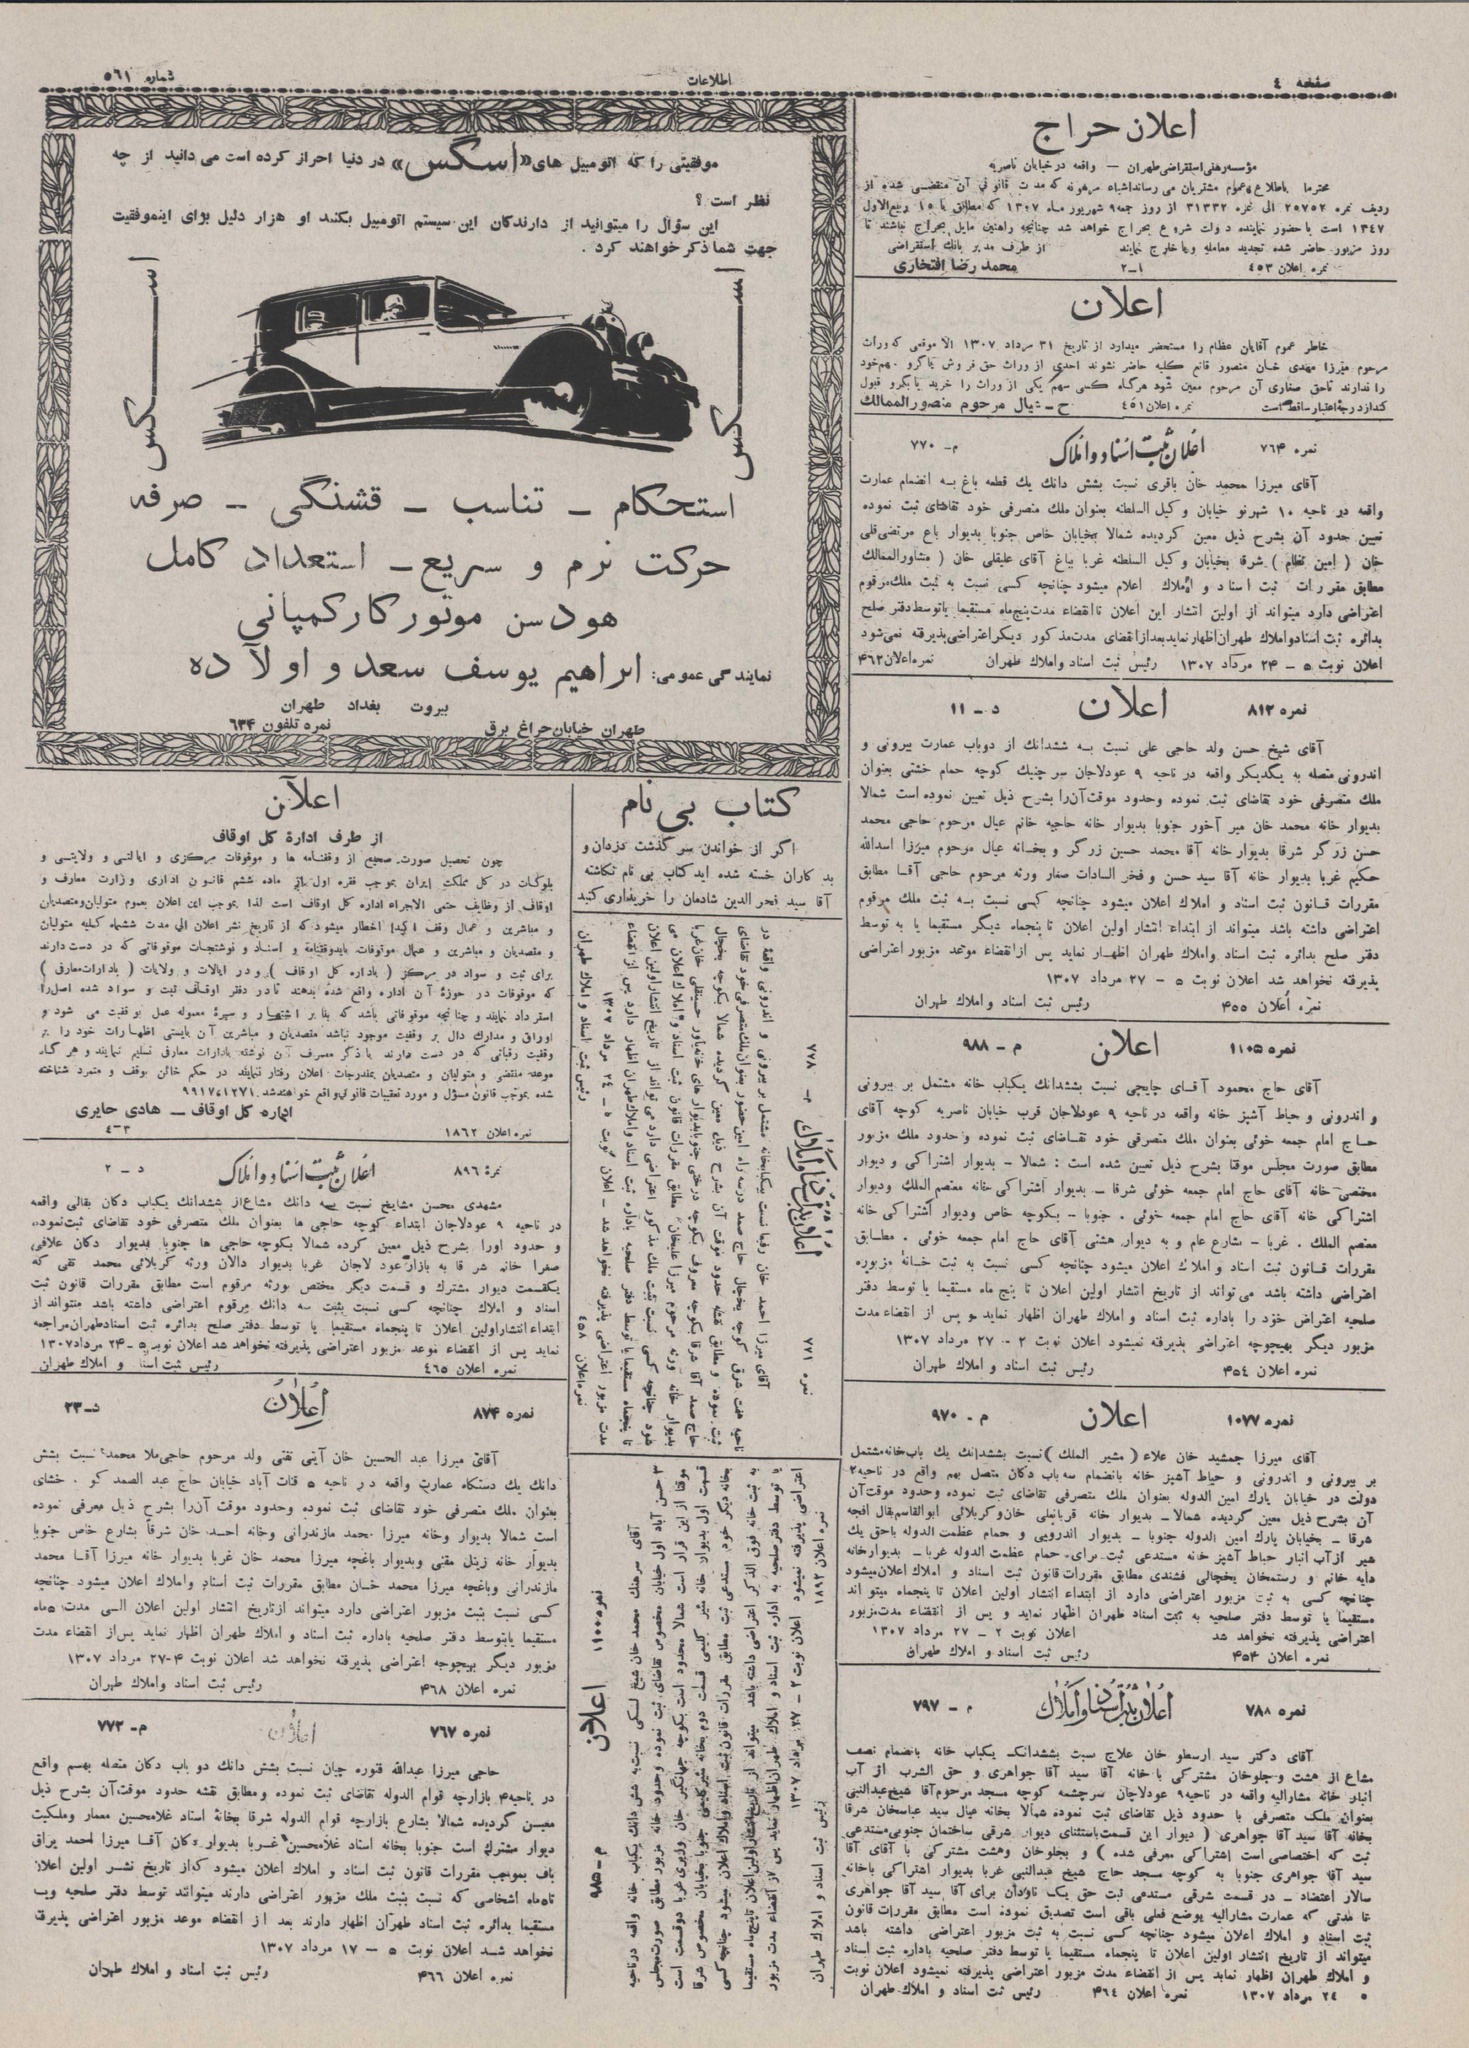 صفحه ٤
اطلاعات
شماره ٥٦١
اعلان حراج
مؤسسه رهنی استقراضی طهران — واقعه در خیابان ناصریه
محترما باطلاع عموم مشتریان می رساند اشیاء مرهونه که مدت قانونی آن منقضی شده از
ردیف نمره ٢٥٧٥٢ الی نمره ٣١٣٣٢ از روز جمعه ٩ شهریور ماه ١٣٠٧ که مطابق با ١٥ ربیع الاول
١٣٤٧ است با حضور نماینده دولت شروع بحراج خواهد شد چنانچه راهنین مایل بحراج نباشند تا
روز مزبور حاضر شده تجدید معامله و یا خارج نمایند از طرف مدیر بانک استقراضی
نمره اعلان ٤٥٣ ١ـ٢ محمد رضا افتخاری
اعلان
خاطر عموم آقایان عظام را مستحضر میدارد از تاریخ ٣١ مرداد ١٣٠٧ الا موقعی که وراث
مرحوم میرزا مهدی خان منصور قانع کلیه حاضر نشوند احدی از وراث حق فروش یا گرو سهم خود
را ندارند تا حق صغاری آن مرحوم معین شود هرگاه کسی سهم یکی از وراث را خرید یا بگرو قبول
کند از درجه اعتبار ساقط است نمره اعلان ٤٥١ ح ـ عیال مرحوم منصور الممالک
نمره ٧٦٤ اعلان ثبت اسناد و املاک م- ٧٧٠
آقای میرزا محمد خان باقری نسبت بشش دانک یک قطعه باغ به انضمام عمارت
واقعه در ناحیه ١٠ شهرنو خیابان وکیل السلطنه بعنوان ملک متصرفی خود تقاضای ثبت نموده
تعیین حدود آن بشرح ذیل معین گردیده شمالا بخیابان خاص جنوبا بدیوار باغ مرتضی قلی
خان ( امین نظام ) شرقا بخیابان وکیل السلطنه غربا بباغ آقای علیقلی خان ( مشاور الممالک
مطابق مقررات ثبت اسناد و املاک اعلام میشود چنانچه کسی نسبت به ثبت ملک مرقوم
اعتراضی دارد میتواند از اولین انتشار این اعلان تا انقضاء مدت پنج ماه مستقیما یا توسط دفتر صلح
بدائره ثبت اسناد و املاک طهران اظهار نماید بعد از انقضای مدت مذکور دیگر اعتراضی پذیرفته نمی شود
اعلان نوبت ٥ - ٢٤ مرداد ١٣٠٧ رئیس ثبت اسناد و املاک طهران نمره اعلان ٤٦٢
نمره ٨١٢ اعلان د - ١١
آقای شیخ حسن ولد حاجی علی نسبت به ششدانک از دوباب عمارت بیرونی و
اندرونی متصله به یکدیگر واقعه در ناحیه ٩ عودلاجان سر چنبک کوچه حمام خشتی بعنوان
ملک متصرفی خود تقاضای ثبت نموده وحدود موقت آن را بشرح ذیل تعیین نموده است شمالا
بدیوار خانه محمد خان میر آخور جنوبا بدیوار خانه حاجیه خانم عیال مرحوم حاجی محمد
حسن زرگر شرقا بدیوار خانه آقا محمد حسین زرگر و بخانه عیال مرحوم میرزا اسدالله
حکیم غربا بدیوار خانه آقا سید حسن و فخر السادات صغار ورثه مرحوم حاجی آقا مطابق
مقررات قانون ثبت اسناد و املاک اعلان میشود چنانچه کسی نسبت به ثبت ملک مرقوم
اعتراضی داشته باشد میتواند از ابتداء انتشار اولین اعلان تا پنجماه دیگر مستقیما یا به توسط
دفتر صلح بدائره ثبت اسناد واملاک طهران اظهار نماید پس از انقضاء موعد مزبور اعتراضی
پذیرفته نخواهد شد اعلان نوبت ٥ - ٢٧ مرداد ١٣٠٧
نمره اعلان ٤٥٥ رئیس ثبت اسناد و املاک طهران
نمره ١١٠٥ اعلان م - ٩٨٨
آقای حاج محمود آقای چایچی نسبت بششدانک یکباب خانه مشتمل بر بیرونی
و اندرونی و حیاط آشپز خانه واقعه در ناحیه ٩ عودلاجان قرب خیابان ناصریه کوچه آقای
حاج امام جمعه خوئی بعنوان ملک متصرفی خود تقاضای ثبت نموده و حدود ملک مزبور
مطابق صورت مجلس موقتا بشرح ذیل تعیین شده است : شمالا - بدیوار اشتراکی و دیوار
مختصی خانه آقای حاج امام جمعه خوئی شرقا - بدیوار اشتراکی خانه معتصم الملک ودیوار
اشتراکی خانه آقای حاج امام جمعه خوئی . جنوبا - بکوچه خاص ودیوار اشتراکی خانه
معتصم الملک . غربا - بشارع عام و به دیوار هشتی آقای حاج امام جمعه خوئی . مطابق
مقررات قانون ثبت اسناد و املاک اعلان میشود چنانچه کسی نسبت به ثبت خانه مزبوره
اعتراضی داشته باشد می تواند از تاریخ انتشار اولین اعلان تا پنج ماه مستقیما یا توسط دفتر
صلحیه اعتراض خود را باداره ثبت اسناد و املاک طهران اظهار نماید و پس از انقضاء مدت
مزبور دیگر بهیچوجه اعتراضی پذیرفته نمیشود اعلان نوبت ٢ - ٢٧ مرداد ١٣٠٧
نمره اعلان ٤٥٤ رئیس ثبت اسناد و املاک طهران
نمره ١٠٧٧ اعلان م - ٩٧٠
آقای میرزا جمشید خان علاء ( مشیر الملک ) نسبت بششدانک یک باب خانه مشتمل
بر بیرونی و اندرونی و حیاط آشپز خانه بانضمام سه باب دکان متصل بهم واقع در ناحیه ٢
دولت در خیابان پارک امین الدوله بعنوان ملک متصرفی تقاضای ثبت نموده وحدود موقت آن
آن بشرح ذیل معین گردیده شمالا - بدیوار خانه قربانعلی خان وکربلائی ابوالقاسم بقال افجه
شرقا - بخیابان پارک امین الدوله جنوبا - بدیوار اندرونی و حمام عظمت الدوله باحق یک
شیر از آب انبار حیاط آشپز خانه مستدعی ثبت برای حمام عظمت الدوله غربا - بدیوارخانه
دایه خانم و رستمخان یخچالی فشندی مطابق مقررات قانون ثبت اسناد و املاک اعلان میشود
چنانچه کسی به ثبت مزبور اعتراضی دارد از ابتداء انتشار اولین اعلان تا پنجماه میتو اند
مستقیما یا توسط دفتر صلحیه به ثبت اسناد طهران اظهار نماید و پس از انقضاء مدت مزبور
اعتراضی پذیرفته نخواهد شد اعلان نوبت ٢ - ٢٧ مرداد ١٣٠٧
نمره اعلان ٤٥٤ رئیس ثبت اسناد و املاک طهران
نمره ٧٨٨ اعلان ثبت اسناد و املاک م - ٧٩٧
آقای دکتر سید ارسطو خان علاج نسبت بششدانک یکباب خانه بانضمام نصف
مشاع از هشت و جلوخان مشترکی با خانه آقا سید آقا جواهری و حق الشرب از آب
انبار خانه مشارالیه واقعه در ناحیه ٩ عودلاجان سرچشمه کوچه مسجد مرحوم آقا شیخ عبدالنبی
بعنوان ملک متصرفی با حدود ذیل تقاضای ثبت نموده شمالا بخانه عیال سید عباسخان شرقا
بخانه آقا سید آقا جواهری ( دیوار این قسمت باستثنای دیوار شرقی ساختمان جنوبی مستدعی
ثبت که اختصاصی است اشتراکی معرفی شده ) و بجلوخان وهشت مشترکی با آقای آقا
سید آقا جواهری جنوبا به کوچه مسجد حاج شیخ عبدالنبی غربا بدیوار اشتراکی باخانه
سالار اعتضاد - در قسمت شرقی مستدعی ثبت حق یک ناودان برای آقا سید آقا جواهری
تا مدتی که عمارت مشارالیه بوضع فعلی باقی است تصدیق نموده است مطابق مقررات قانون
ثبت اسناد و املاک اعلان میشود چنانچه کسی نسبت به ثبت مزبور اعتراضی داشته باشد
میتواند از تاریخ انتشار اولین اعلان تا پنجماه مستقیما یا توسط دفتر صلحیه باداره ثبت اسناد
و املاک طهران اظهار نماید پس از انقضاء مدت مزبور اعتراضی پذیرفته نمیشود اعلان نوبت
٥ ٢٤ مرداد ١٣٠٧ نمره اعلان ٤٦٤ رئیس ثبت اسناد و املاک طهران
موفقیتی را که اتومبیل های «اسگس» در دنیا احراز کرده است می دانید از چه
نظر است ؟
این سؤال را میتوانید از دارندگان این سیستم اتومبیل بکنند او هزار دلیل برای اینموفقیت
جهت شما ذکر خواهند کرد .
اسکس
اسکس
استحکام - تناسب - قشنگی - صرفه
حرکت نرم و سریع - استعداد کامل
هودسن موتور کار کمپانی
نمایندگی عمومی: ابراهیم یوسف سعد و اولاده
بیروت بغداد طهران
طهران خیابان چراغ برق نمره تلفون ٦٣٤
کتاب بی نام
اگر از خواندن سر گذشت دزدان و
بد کاران خسته شده اید کتاب بی نام نگاشته
آقا سید فخر الدین شادمان را خریداری کنید
نمره ٧٧١ اعلان ثبت اسناد و املاک م - ٧٧٨
آقای میرزا احمد خان رفیا نسبت بیکبابخانه مشتمل بر بیرونی و اندرونی واقعه در
ناحیه هفت شرق کوچه یخچال حاج صمد درسه راه امین حضور بعنوان ملک متصرفی خود تقاضای
ثبت نموده و مطابق نقشه حدود موقت آن بشرح ذیل معین گردیده شمالا بکوچه یخچال
حاج صمد آقا شرقا بکوچه معروف بکوچه درختی جنوبا بدیوار های خانه یاور حسینقلی خان غربا
بدیوار خانه ورثه مرحوم میرزا علیخان مطابق مقررات قانون ثبت اسناد و املاک اعلان می
شود چنانچه کسی نسبت بثبت ملک مذکور اعتراضی دارد می تواند از تاریخ انتشار اولین اعلان
تا پنجماه مستقیما یا توسط دفتر صلحیه باداره ثبت اسناد واملاک طهران اظهار دارد پس از انقضاء
مدت مزبور اعتراضی پذیرفته نخواهد شد - اعلان نوبت ٥ - ٢٤ مرداد ١٣٠٧
نمره اعلان ٤٥٨ رئیس ثبت اسناد و املاک طهران
نمره ١١٠٠ اعلان م - ٩٨٥
آقای سرهنگ محمد خان شیخ لسکی نسبت به شش دانک یکباب خانه واقعه در ناحیه
٣ حسن آباد اول خیابان مخصوص تقاضای ثبت نموده و حدود خانه مزبور مطابق صورت مجلس
موقتا از این قرار است شمالا محدود است بکوچه جهانگیر خان وزیری غربا دوقسمت است
قسمت اول بدیوار خانه مشیر کلیمی قسمت دوم بخانه مشیر کلیمی جنوبا بخیابان مخصوص شرقا
بخانه دیگر خود مستدعی ثبت مطابق مقررات قانون ثبت اسناد واملاک اعلان میشود چنانچه کسی
به ثبت خانه فوق الذکر اعتراضی داشته باشد میتواند از تاریخ انتشار اولین اعلان تا پنج ماه مستقیما
یا توسط دفتر صلحیه به اداره ثبت اسناد و املاک طهران اظهار نماید پس از انقضاء مدت مزبور
اعتراضی پذیرفته نمیشود اعلان نوبت ٢ - ٢٧ مرداد ١٣٠٧
نمره اعلان ١٨٩٢ رئیس ثبت اسناد و املاک طهران
اعلان
از طرف اداره کل اوقاف
چون تحصیل صورت صحیح از وقفنامه ها و موقوفات مرکزی و ایالتی و ولایتی و
بلوکات در کل مملکت ایران بموجب فقره اول از ماده ششم قانون اداری وزارت معارف و
اوقاف از وظایف حتمی الاجراء اداره کل اوقاف است لذا بموجب این اعلان بعموم متولیان ومتصدیان
و مباشرین و عمال وقف اکیدا اخطار میشود که از تاریخ نشر اعلان الی مدت ششماه کلیه متولیان
و متصدیان و مباشرین و عمال موقوفات بایدوقفنامه و اسناد و نوشتجات موقوفاتی که در دست دارند
برای ثبت و سواد در مرکز ( باداره کل اوقاف ) و در ایالات و ولایات ( بادارات معارف )
که موقوفات در حوزه آن اداره واقع شده بدهند تا در دفتر اوقاف ثبت و سواد شده اصل را
استرداد نمایند و چنانچه موقوفاتی باشد که بنا بر اشتهار و سیره معموله عمل بوقفیت می شود و
اوراق و مدارک دال بر وقفیت موجود نباشد متصدیان و مباشرین آن بایستی اظهارات خود را بر
وقفیت رقباتی که در دست دارند با ذکر مصرف آن نوشته بادارات معارف تسلیم نمایند و هر گاه
موعد منقضی و متولیان و متصدیان بمندرجات اعلان رفتار ننمایند در حکم خائن بوقف و متمرد شناخته
شده بموجب قانون مسؤل و مورد تعقیبات قانونی واقع خواهند شد.
اداره کل اوقاف - هادی حایری
نمره اعلان ١٨٦٢ ٣-٤
نمره ٨٩٦ اعلان ثبت اسناد و املاک د - ٢
مشهدی محسن مشایخ نسبت به سه دانک مشاع از ششدانک یکباب دکان بقالی واقعه
در ناحیه ٩ عودلاجان ابتداء کوچه حاجی ها بعنوان ملک متصرفی خود تقاضای ثبت نموده
و حدود اورا بشرح ذیل معین کرده شمالا بکوچه حاجی ها جنوبا بدیوار دکان علافی
صغرا خانه شرقا به بازار عود لاجان غربا بدیوار دالان ورثه کربلائی محمد تقی که
یکقسمت دیوار مشترک و قسمت دیگر مختص بورثه مرقوم است مطابق مقررات قانون ثبت
اسناد و املاک چنانچه کسی نسبت بثبت سه دانک مرقوم اعتراضی داشته باشد میتواند از
ابتداء انتشار اولین اعلان تا پنجماه مستقیما یا توسط دفتر صلح بدائره ثبت اسناد طهران مراجعه
نماید پس از انقضاء موعد مزبور اعتراضی پذیرفته نخواهد شد اعلان نوبت ٥ - ٢٤ مرداد ١٣٠٧
نمره اعلان ٤٦٥ رئیس ثبت اسناد و املاک طهران
نمره ٨٧٤ اعلان د-٢٣
آقای میرزا عبد الحسین خان آیتی تفتی ولد مرحوم حاجی ملا محمد نسبت بشش
دانک یک دستگاه عمارت واقعه در ناحیه ٥ قنات آباد خیابان حاج عبد الصمد کو . خشای
بعنوان ملک متصرفی خود تقاضای ثبت نموده وحدود موقت آن را بشرح ذیل معرفی نموده
است شمالا بدیوار وخانه میرزا محمد مازندرانی وخانه احمد خان شرقا بشارع خاص جنوبا
بدیوار خانه زینل مقنی وبدیوار باغچه میرزا محمد خان غربا بدیوار خانه میرزا آقا محمد
مازندرانی وباغچه میرزا محمد خان مطابق مقررات ثبت اسناد واملاک اعلان میشود چنانچه
کسی نسبت بثبت مزبور اعتراضی دارد میتواند از تاریخ انتشار اولین اعلان الی مدت ٥ ماه
مستقیما یاتوسط دفتر صلحیه باداره ثبت اسناد و املاک طهران اظهار نماید پس از انقضاء مدت
مزبور دیگر بهیچوجه اعتراضی پذیرفته نخواهد شد اعلان نوبت ٤-٢٧ مرداد ١٣٠٧
نمره اعلان ٤٦٨ رئیس ثبت اسناد واملاک طهران
نمره ٧٦٧ اعلان م- ٧٧٢
حاجی میرزا عبدالله قنوره چیان نسبت بشش دانک دو باب دکان متصله بهم واقع
در ناحیه ٤ بازارچه قوام الدوله تقاضای ثبت نموده ومطابق نقشه حدود موقت آن بشرح ذیل
معین گردیده شمالا بشارع بازارچه قوام الدوله شرقا بخانه استاد غلامحسین معمار وملکیت
دیوار مشترک است جنوبا بخانه استاد غلامحسین غربا بدیوار دکان آقا میرزا احمد یراق
باف بموجب مقررات قانون ثبت اسناد و املاک اعلان میشود که از تاریخ نشر اولین اعلان
تا ٥ ماه اشخاصی که نسبت بثبت ملک مزبور اعتراضی دارند میتوانند توسط دفتر صلحیه ویا
مستقیما بدائره ثبت اسناد طهران اظهار دارند بعد از انقضاء موعد مزبور اعتراضی پذیرفته
نخواهد شد اعلان نوبت ٥ - ١٧ مرداد ١٣٠٧
نمره اعلان ٤٦٦ رئیس ثبت اسناد و املاک طهران